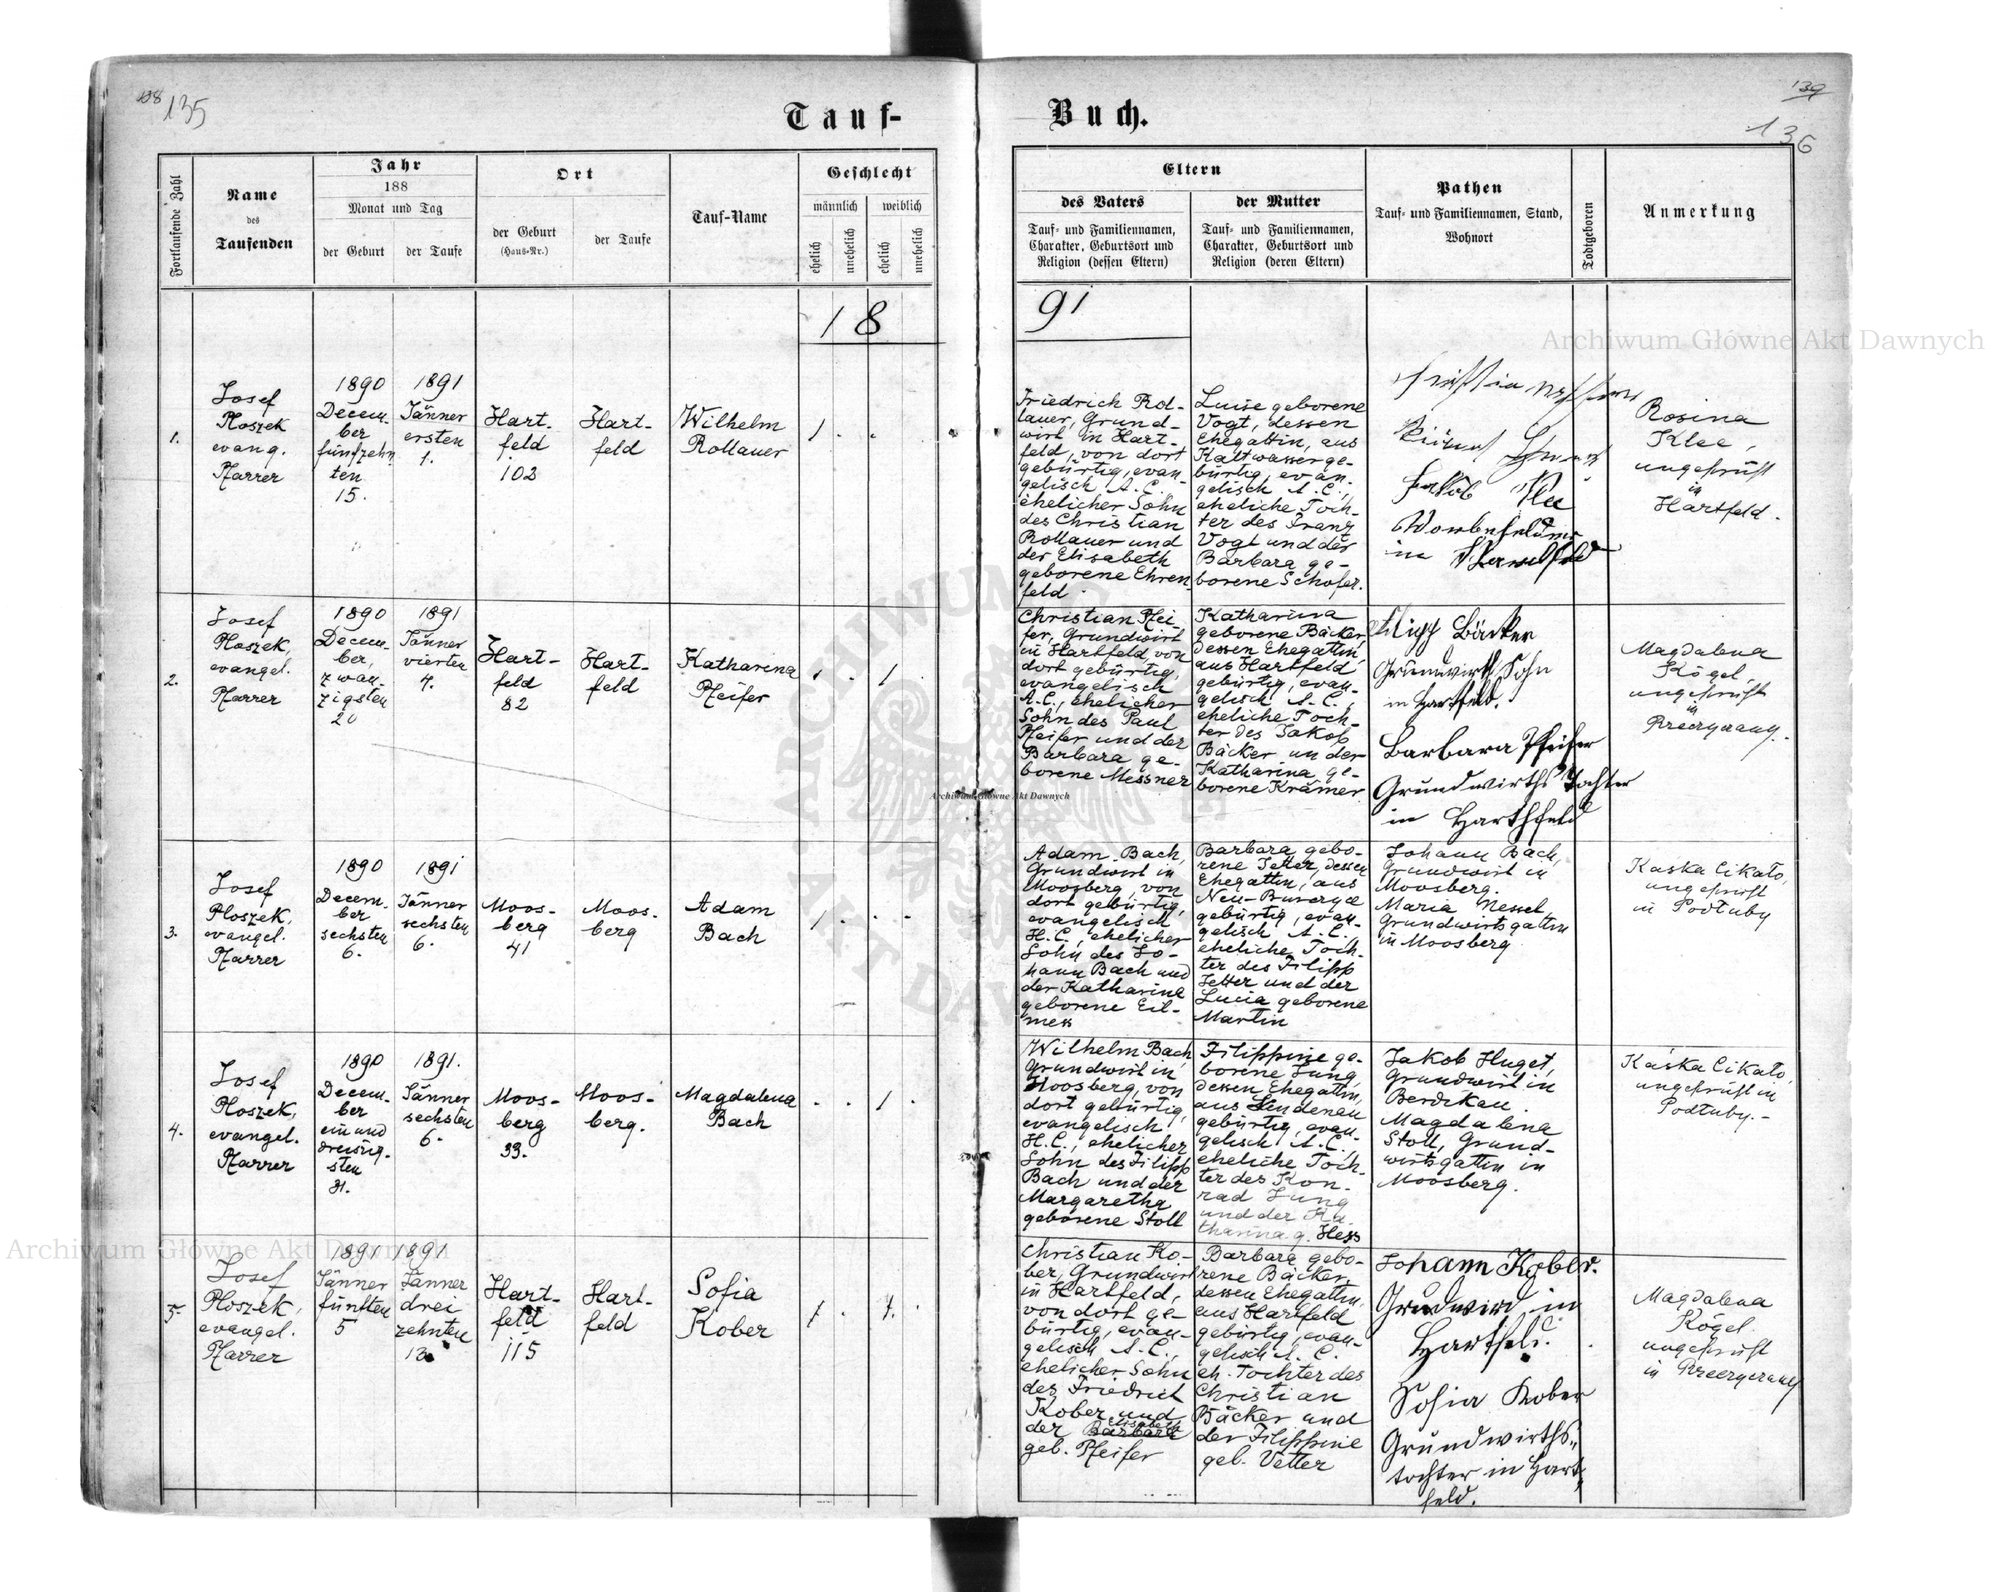 108 135
Tauf-
Buch.
139
136
Fortlaufende Zahl
Name
des
Taufenden
Jahr
188
Monat und Tag
der Geburt
der Taufe
Ort
der Geburt
(Haus-Nr.)
der Taufe
Tauf-Name
Geschlecht
männlich
weiblich
ehelich
unehelich
ehelich
unehelich
Eltern
des Vaters
Tauf- und Familiennamen,
Charakter, Geburtsort und
Religion (dessen Eltern)
der Mutter
Tauf- und Familiennamen,
Charakter, Geburtsort und
Religion (deren Eltern)
Pathen
Tauf- und Familiennamen, Stand,
Wohnort
Todtgeboren
Anmerkung
18
91
1.
Josef
Ploszek
evang.
Pfarrer
1890
Decem-
ber
fünfzehn
ten
15.
1891
Jänner
ersten
1.
Hart-
feld
102
Hart-
feld
Wilhelm
Rollauer
1 . .
Friedrich Rol-
lauer, Grund-
wirt in Hart-
feld, von dort
gebürtig, evan-
gelisch A. C.,
ehelicher Sohn
des Christian
Rollauer und
der Elisabeth
geborene Ehren-
feld.
Luise geborene
Vogt, dessen
Ehegattin, aus
Kaltwasser ge-
bürtig, evan-
gelisch A. C.,
eheliche Toch-
ter des Franz
Vogt und der
Barbara ge-
borene Schofer.
Jakob Klee
in
Rosina
Klee,
ungeprüft
in
Hartfeld.
2.
Josef
Ploszek,
evangel.
Pfarrer
1890
Decem-
ber,
zwan-
zigsten
20
1891
Jänner
vierten
4.
Hart-
feld
82
Hart-
feld
Katharina
Pfeifer
. . 1 .
Christian Pfei-
fer, Grundwirt
in Hartfeld, von
dort gebürtig,
evangelisch
A. C., ehelicher
Sohn des Paul
Pfeifer und der
Barbara ge-
borene Messner
Katharina
geborene Bäcker,
dessen Ehegattin,
aus Hartfeld
gebürtig, evan-
gelisch A. C.,
eheliche Toch-
ter des Jakob
Bäcker un der
Katharina ge-
borene Krämer
Filipp Bäcker
Grundwirth Sohn
in Hartfeld.
Barbara Pfeifer
Grundwirths Tochter
in Harthfeld
Magdalena
Kögel,
ungeprüft
in
3.
Josef
Ploszek,
evangel.
Pfarrer
1890
Decem-
ber
sechsten
6.
1891
Jänner
sechsten
6.
Moos-
berg
41
Moos-
berg
Adam
Bach
1 . . .
Adam Bach,
Grundwirt in
Moosberg, von
dort gebürtig,
evangelisch
H. C., ehelicher
Sohn des Jo-
hann Bach und
der Katharina
geborene Eil-
mess
Barbara gebo-
rene Jetter, dessen
Ehegattin, aus
Neu-
gebürtig, evan-
gelisch A. C.
eheliche Toch-
ter des Filipp
Jetter und der
Lucia geborene
Martin
Johann Bach,
Grundwirt in
Moosberg.
Maria Nessel,
Grundwirtsgattin
in Moosberg
Kaska Cikało,
ungeprüft
in Podłuby
4.
Josef
Ploszek,
evangel.
Pfarrer
1890
Decem-
ber
ein und
dreissig-
sten
31.
1891.
Jänner
sechsten
6.
Moos-
berg
33.
Moos-
berg.
Magdalena
Bach
. . 1 .
Wilhelm Bach,
Grundwirt in
Moosberg, von
dort gebürtig,
evangelisch
H. C., ehelicher
Sohn des Filipp
Bach und der
Margaretha
geborene Stoll
Filippine ge-
borene Jung,
dessen Ehegattin,
aus Lindenau
gebürtig, evan-
gelisch A. C.,
eheliche Toch-
ter des Kon-
rad Jung
und der Ka-
tharina g. Hess
Jakob Huget,
Grundwirt in
Berdikau.
Magdalena
Stoll, Grund-
wirtsgattin in
Moosberg.
Kaska Cikało,
ungeprüft in
Podłuby.-
5.
Josef
Ploszek,
evangel.
Pfarrer
1891
Jänner
fünften
5
1891
Jänner
drei
zehnten
13.
Hart-
feld
115
Hart-
feld
Sofia
Kober
1 . 1. .
Christian Ko-
ber, Grundwirt
in Hartfeld,
von dort ge-
bürtig, evan-
gelisch A. C.,
ehelicher Sohn
des Friedrich
Kober und
Elisabeth
der Barbara
geb. Pfeifer
Barbara gebo-
rene Bäcker,
dessen Ehegattin,
aus Hartfeld
gebürtig, evan-
gelisch A. C.
eh. Tochter des
Christian
Bäcker und
der Filippine
geb. Vetter
Johann Kober.
Grundwird, in
Hartfeld.
Sofia Kober
Grundwirths-
tochter in Hart-
feld.
Magdalena
Kögel
ungeprüft
in
Archiwum Główne Akt Dawnych
Archiwum Główne Akt Dawnych
Archiwum Główne Akt Dawnych
ARCHIWUM
AKT DAW